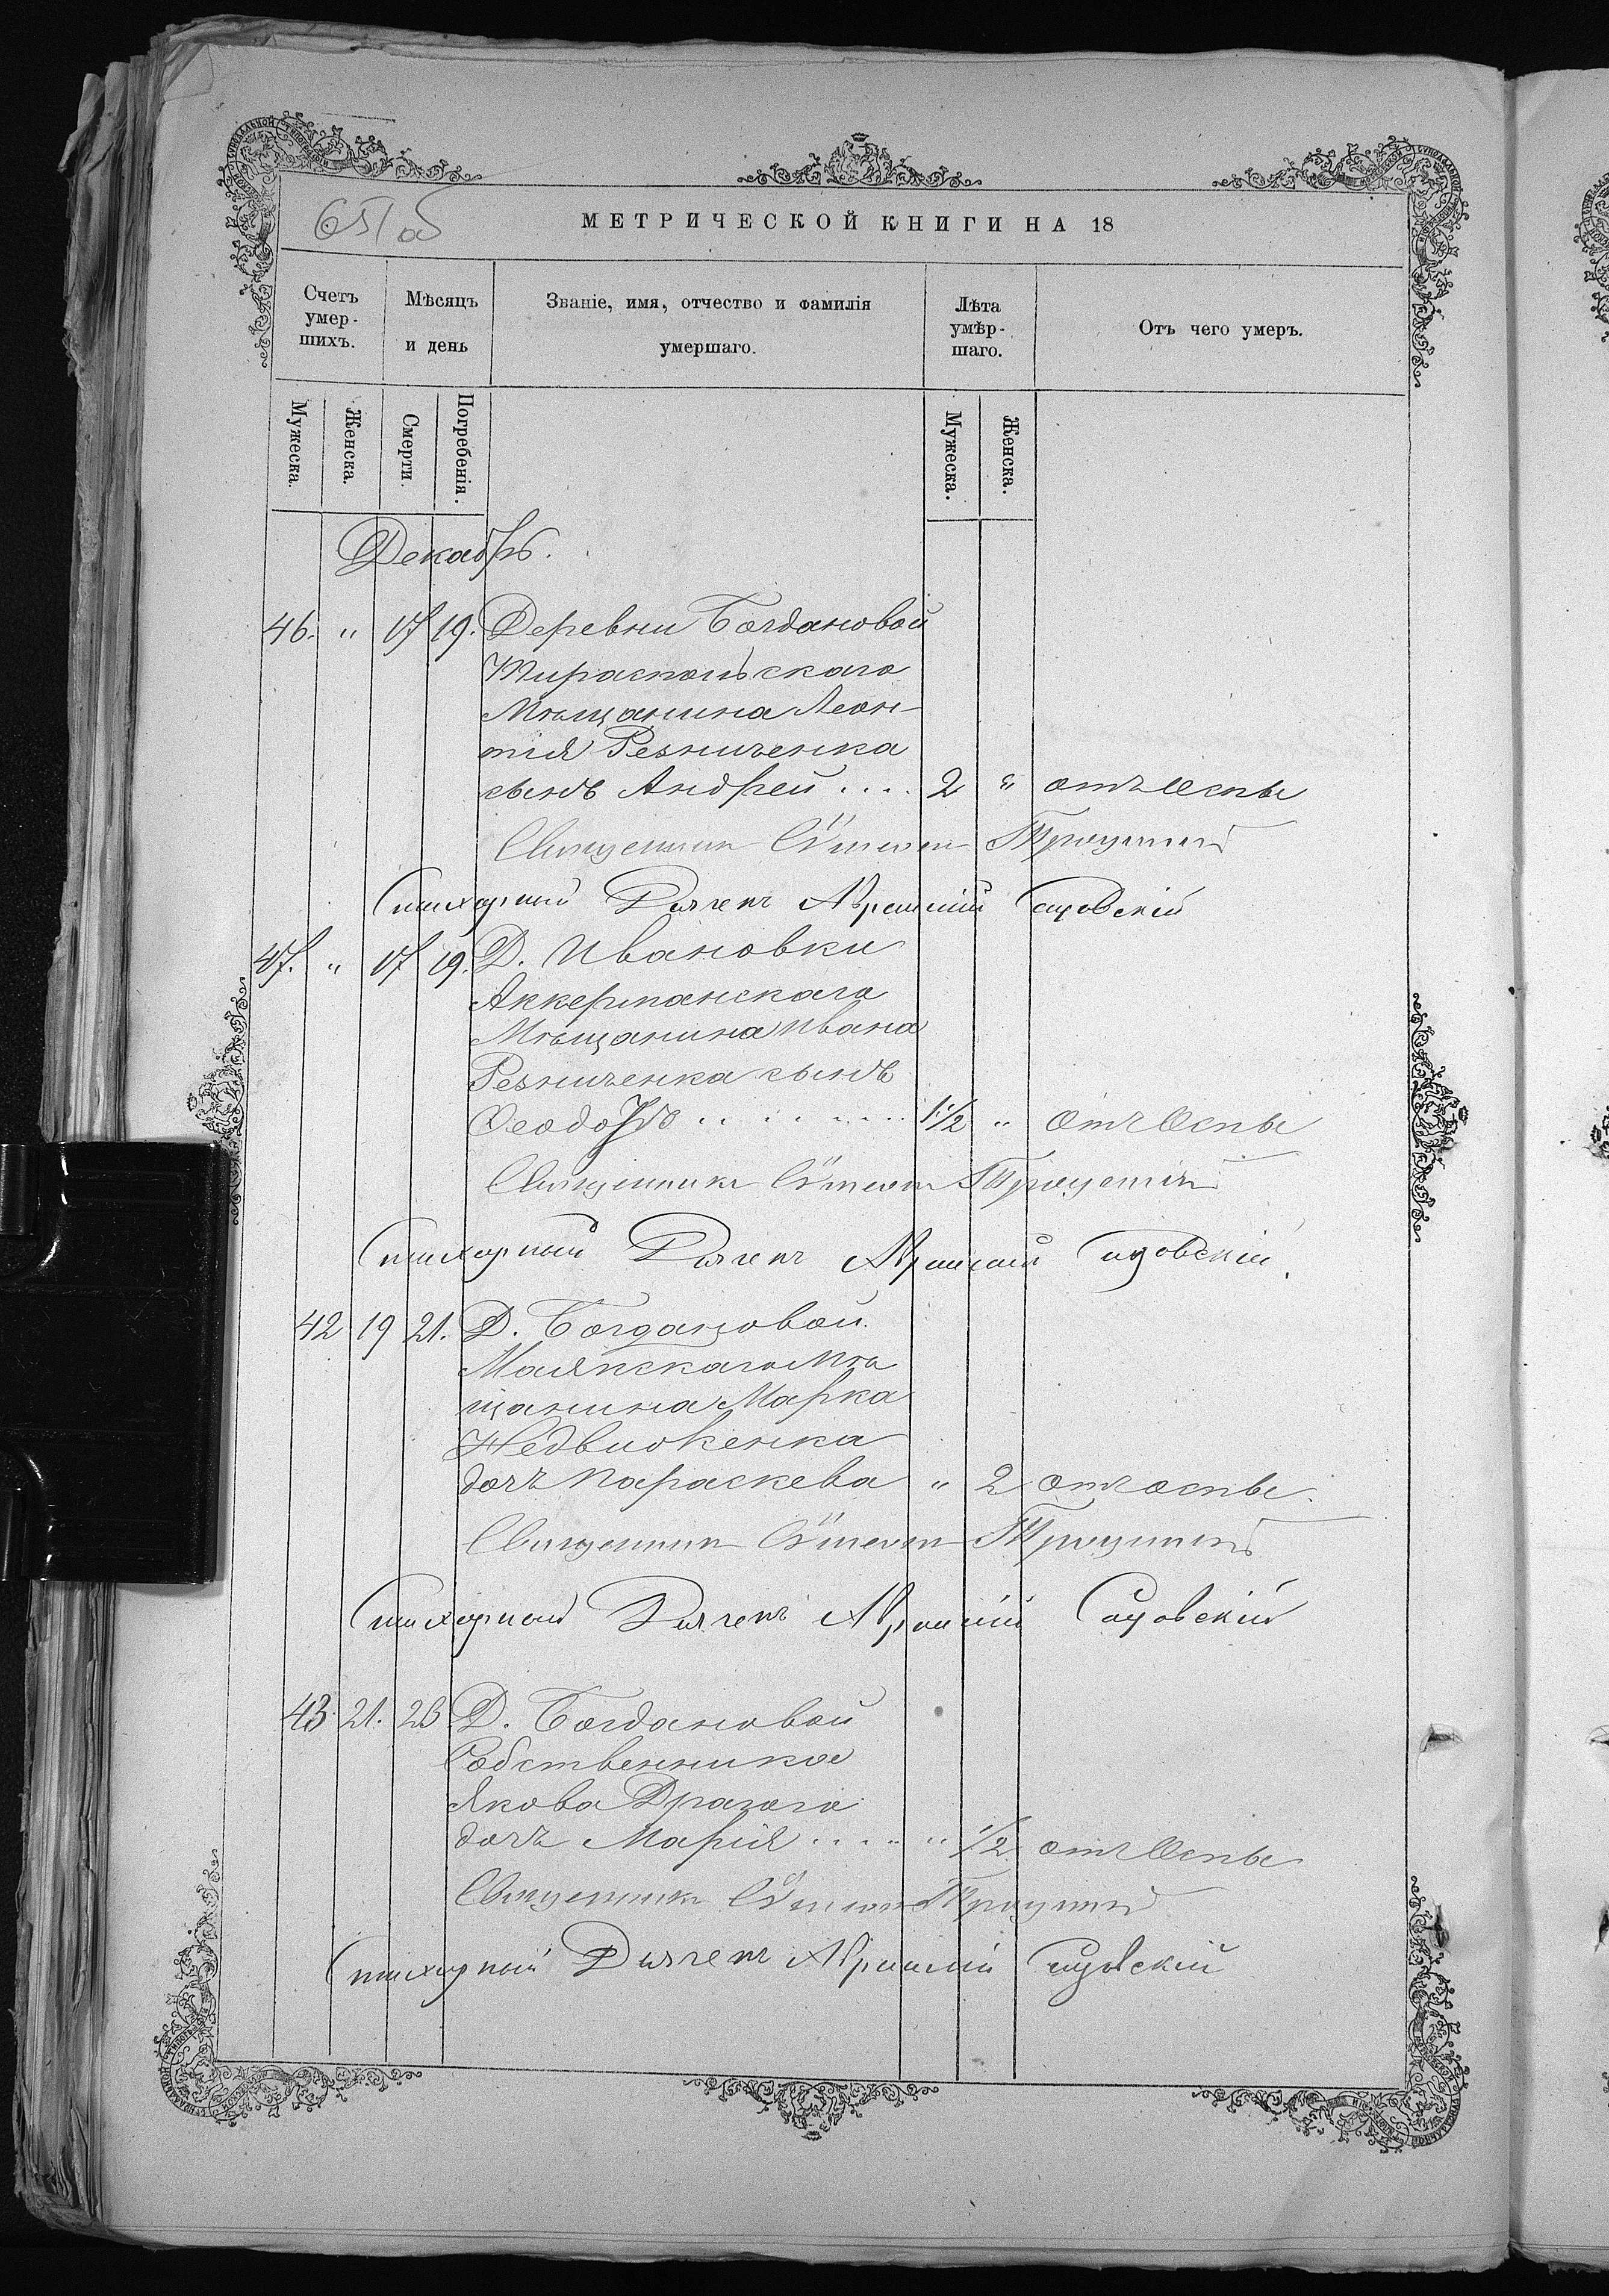 651 об
МЕТРИЧЕСКОЙ КНИГИ НА 18
Счетъ умер-шихъ.
Мѣсяцъ и день
Званіе, имя, отчество и фамилія умершаго.
Лѣта умѣр-шаго.
Отъ чего умеръ.
Мужеска. Женска. Смерти. Погребенія. Мужеска. Женска.
Декабрь.
46. " 17 19. Деревни Богдановой
Тираспольскаго
Мѣщанина Леон-
тія Резниченка
сынъ Андрей .... 2 " отъ Оспы
Священникъ Троицкій
Стихарный Дьячекъ Садовскій
47. " 17 19. Д. Ивановки
Аккерманскаго
Мѣщанина Ивана
Резниченка сынъ
Ѳеодоръ ........ 1 1/2 " отъ Оспы
Священникъ Троицкій
Стихарный Дьячекъ Садовскій.
42 19 21. Д. Богдановой
Маякскаго Мѣ
щанина Марка
Недвиженка
дочъ Параскева " 2 отъ оспы.
Священникъ Троицкій
Стихарный Дьячекъ Садовскій
43. 21. 23 Д. Богдановой
Собственника
Якова Драгого
дочъ Марія .... " 1/2 отъ Оспы
Священникъ Троицкій
Стихарный Дьячекъ Садовскій